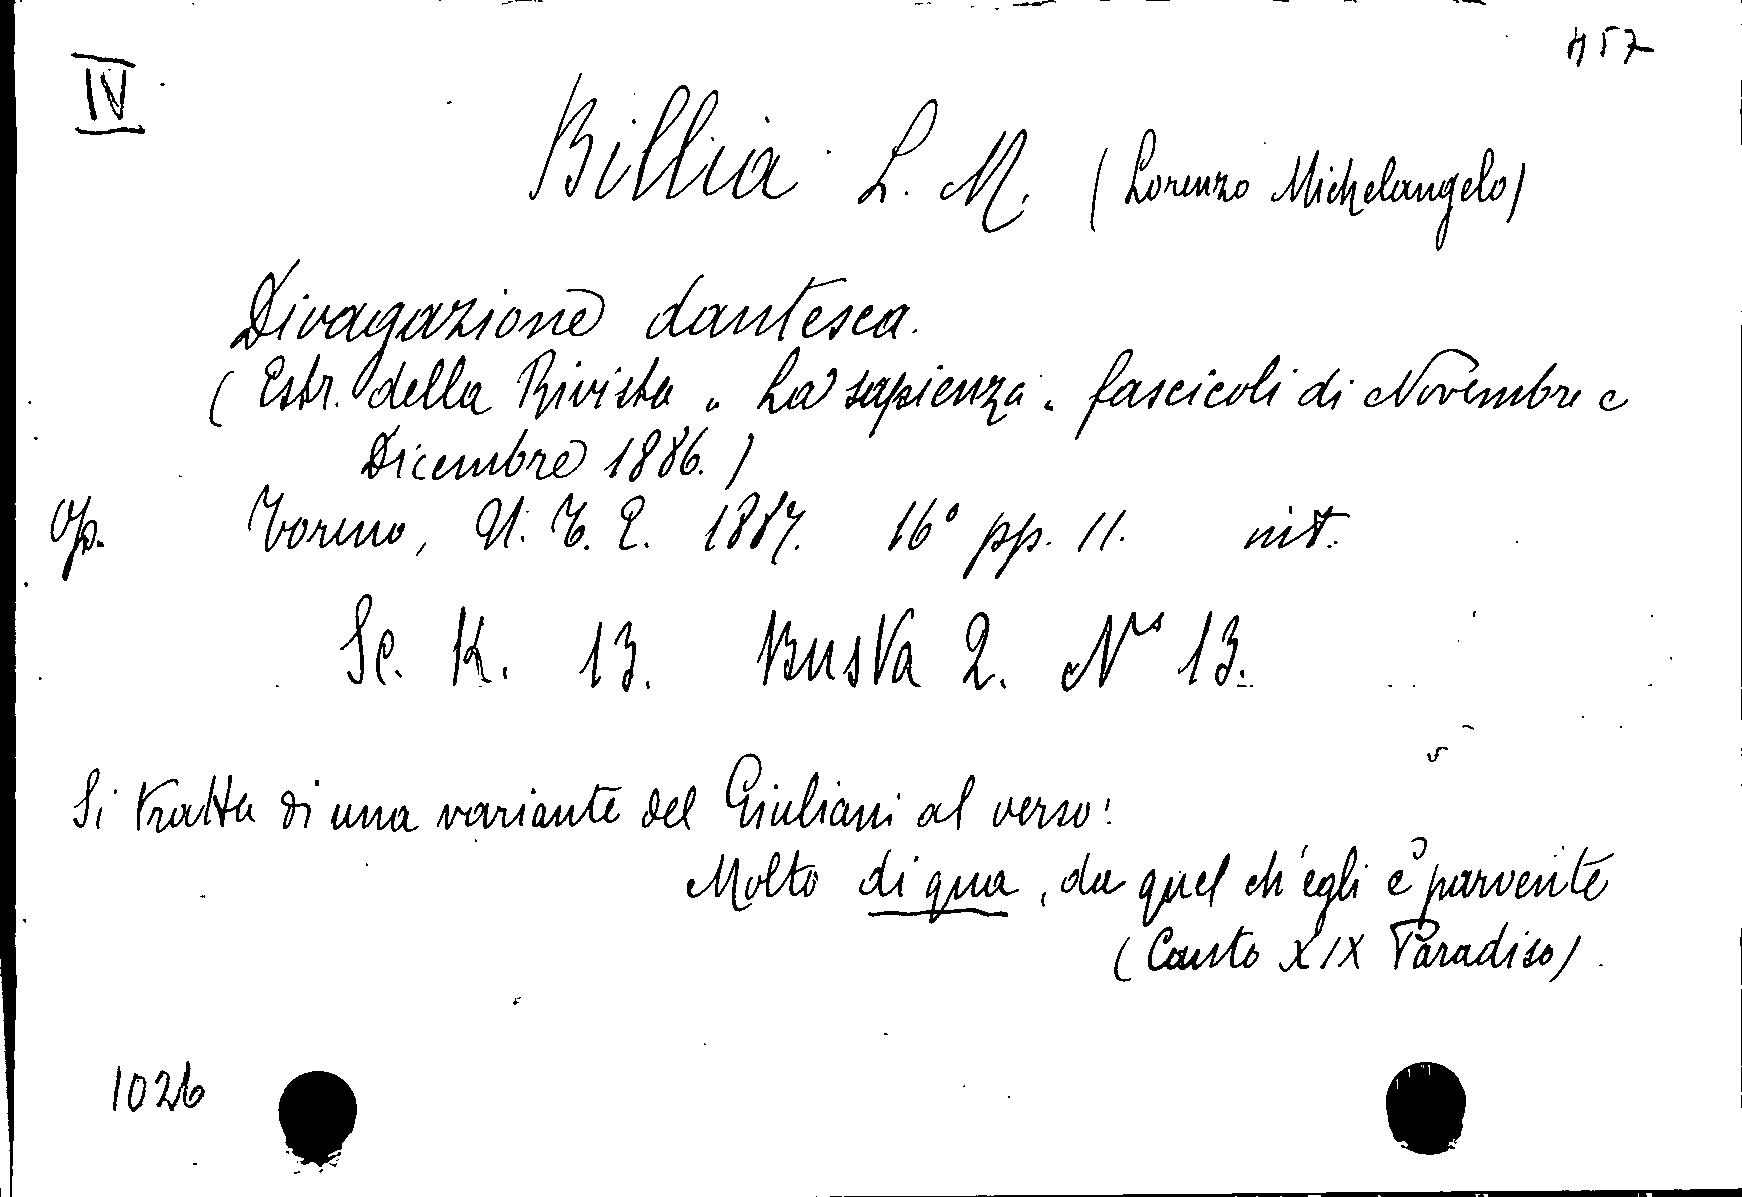 IV
457
Billia L. M. (Lorenzo Michelangelo)
Divagazione dantesca.
(Estr. della Rivista "La sapienza" fascicoli di Novembre e
Dicembre 1886.)
Op. Torino, U. T. E. 1887. 16° pp. 11. int.
Sc. K. 13. Busta 2. N° 13.
Si tratta di una variante del Giuliani al verso:
Molto di qua, da quel ch'egli è parvente
(Canto XIX Paradiso).
1026